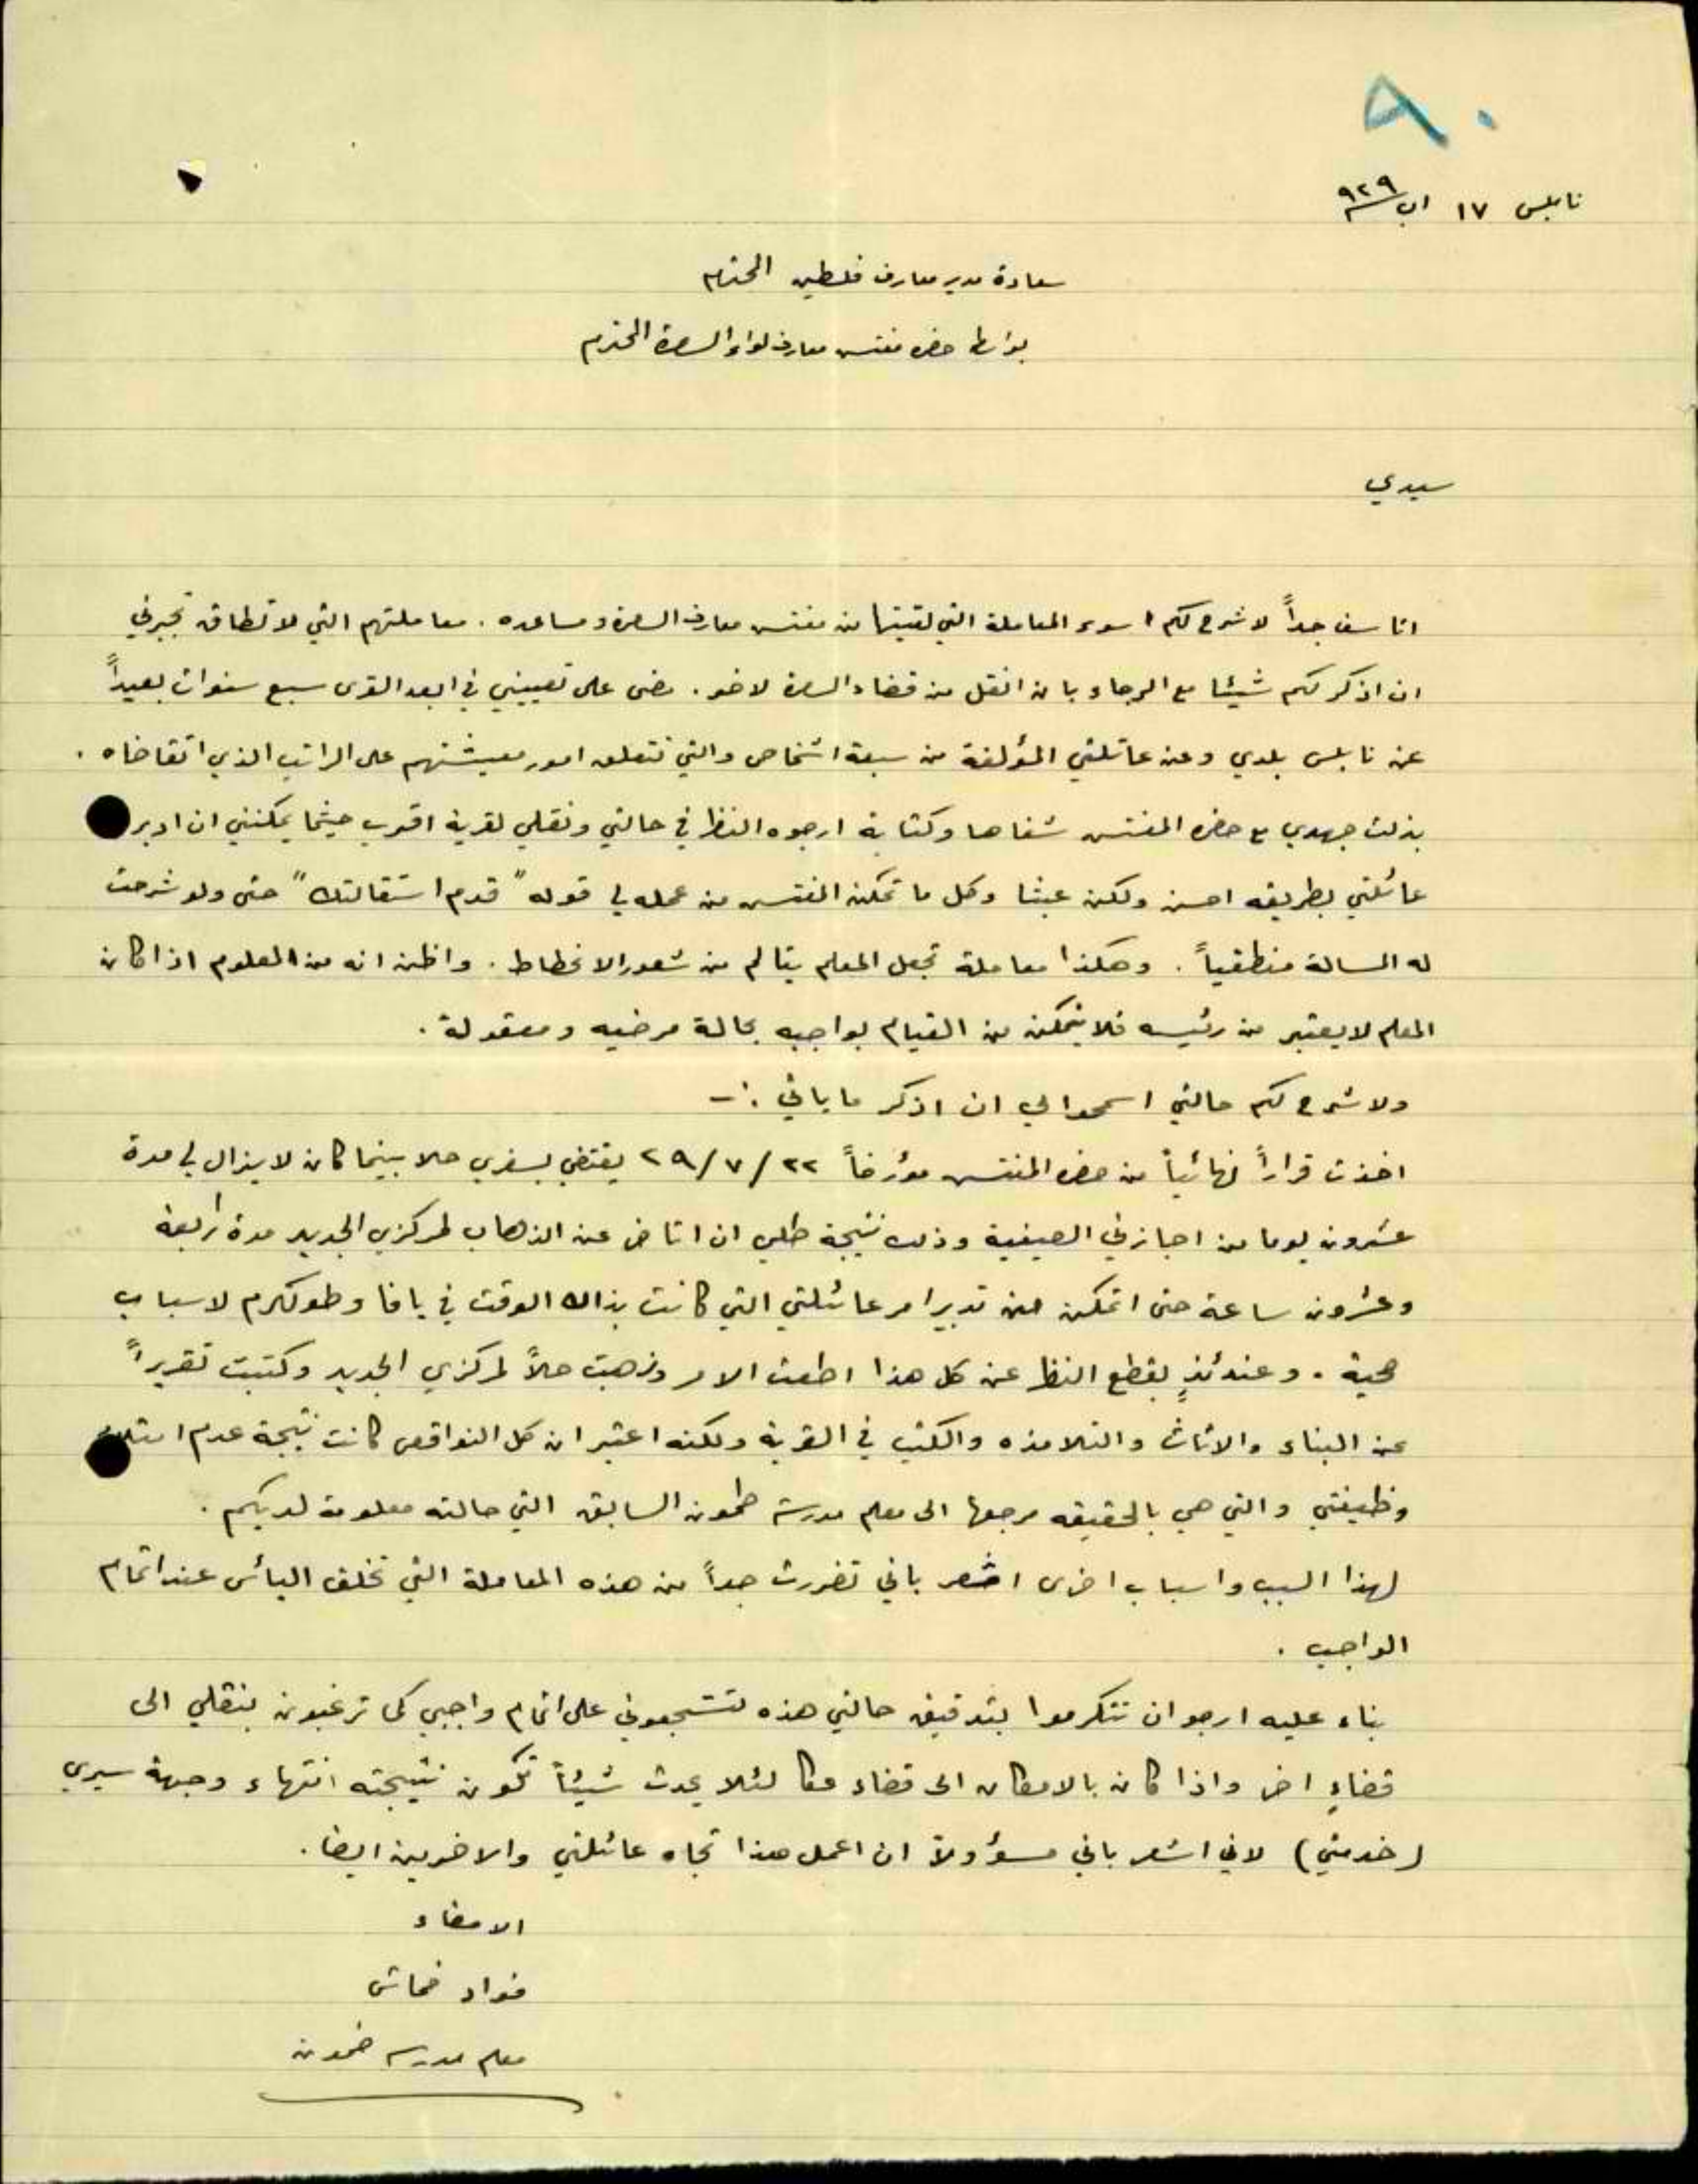 ٨٠
نابلس ١٧ اب ٩٢٩
سعادة مدير معارف فلسطين المحترم
بواسطة حضرة مفتش معارف لواء السامرة المحترم
سيدي
انا اسف جداً لاشرح لكم اسوء المعاملة التي لقيتها من مفتش معارف السامرة ومساعده . معاملتهم التي لا تطاق تجبرني
ان اذكر لكم شيئا مع الرجاء بان انقل من قضاء السامرة لاخر . مضى على تعييني في ابعد القرى سبع سنوات بعيداً
عن نابلس بلدي وعن عائلتي المؤلفة من سبعة اشخاص والتي تتعلق امور معيشتهم على الراتب الذي اتقاضاه .
بذلت جهدي مع حضرة المفتش شفاها وكتابة ارجوه النظر في حالتي ونقلي لقرية اقرب حيثما يمكنني ان ادبر
عائلتي بطريقه احسن ولكن عبثا وكل ما تمكن المفتش من عمله لي قوله " قدم استقالتك " حتى ولو شرحت
له المسالة منطقياً . وهكذا معاملة تجعل المعلم يتالم من شعور الانحطاط . واظن انه من المعلوم اذا كان
المعلم لا يعتبر من رئيسه فلا يتمكن من القيام بواجبه بحالة مرضيه ومعقولة .
ولاشرح لكم حالتي اسمحوا لي ان اذكر ما ياتي :-
اخذت قراراً نهائياً من حضرة المفتش مؤرخاً ٢٢ / ٧ / ٢٩ يقتضي بسفري حلا بينما كان لا يزال لي مدة
عشرون يوما من اجازتي الصيفية وذلك نتيجة طلبي ان اتاخر عن الذهاب لمركزي الجديد مدة اربعة
وعشرون ساعة حتى اتمكن من تدبير امر عائلتي التي كانت بذاك الوقت في يافا وطولكرم لاسباب
صحية . وعندئذٍ بقطع النظر عن كل هذا اطعت الامر وذهبت حلاً لمركزي الجديد وكتبت تقريراً
عن البناء والاثاث والتلامذه والكتب في القرية ولكنه اعتبر ان كل النواقص كانت نتيجة عدم
وظيفتي والتي هي بالحقيقه مرجعها الى معلم مدرسة طمون السابق التي حالته معلومة لديكم .
لهذا السبب واسباب اخرى اشعر باني تضررت جداً من هذه المعاملة التي تخلق اليأس عند اتمام
الواجب .
بناء عليه ارجو ان تتكرموا بتدقيق حالتي هذه لتشجعوني على اتمام واجبي كما ترغبون بنقلي الى
قضاءٍ اخر واذا كان بالامكان الى قضاء عكا لئلا يحدث شيئاً تكون نتيجته انتهاء وجهة سيري
(خدمتي) لاني اشعر باني مسؤولاً ان اعمل هذا تجاه عائلتي والاخرين ايضا .
الامضاء
فواد خماش
معلم مدرسة طمون